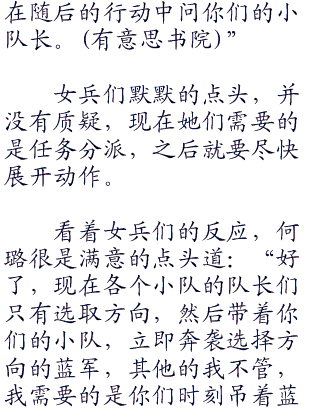 在随后的行动中问你们的小
队长。(有意思书院)”
女兵们默默的点头，并
没有质疑，现在她们需要的
是任务分派，之后就要尽快
展开动作。
看着女兵们的反应，何
璐很是满意的点头道：“好
了，现在各个小队的队长们
只有选取方向，然后带着你
们的小队，立即奔袭选择方
向的蓝军，其他的我不管，
我需要的是你们时刻吊着蓝